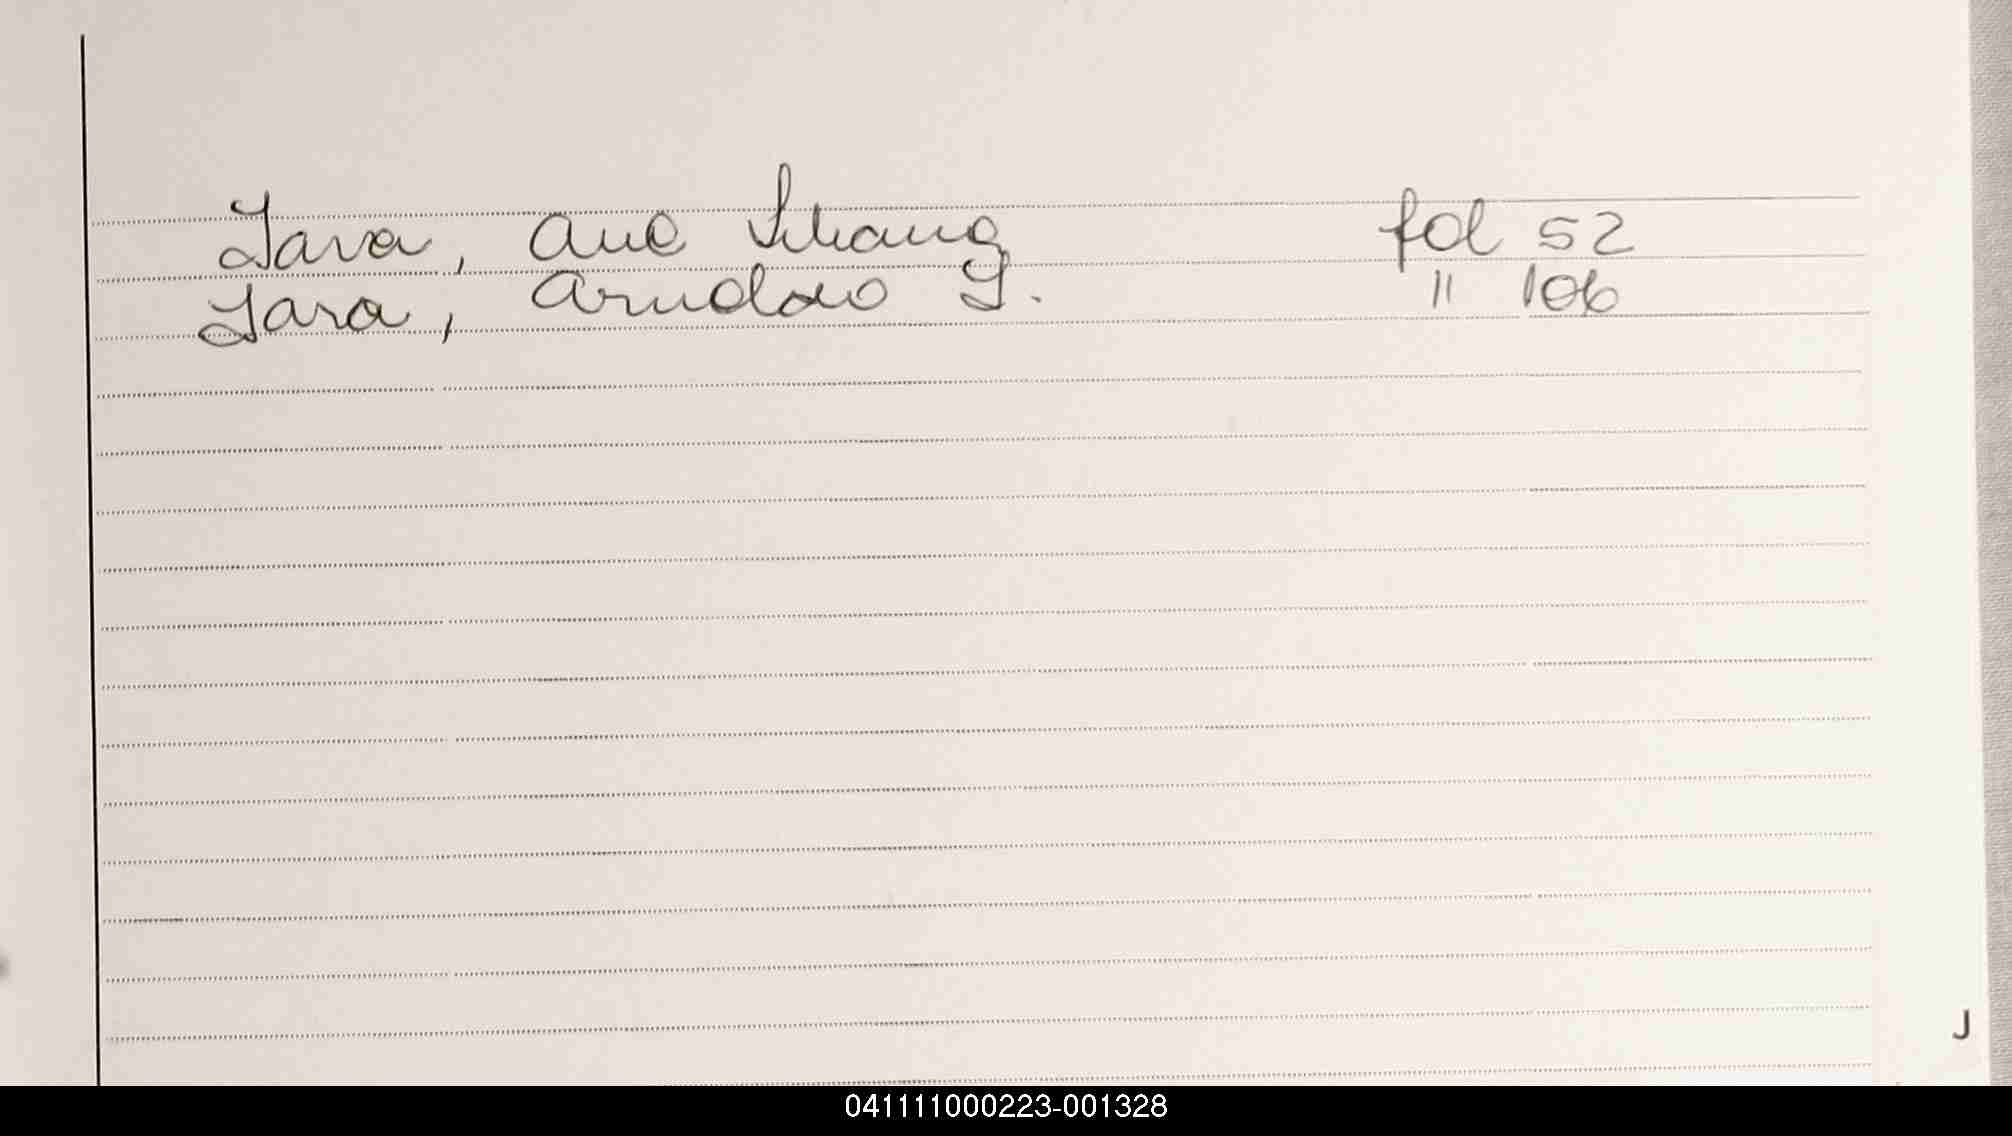 Jara, Ana fol 52
Jara, Arnoldo J. " 106
J
041111000223-001328